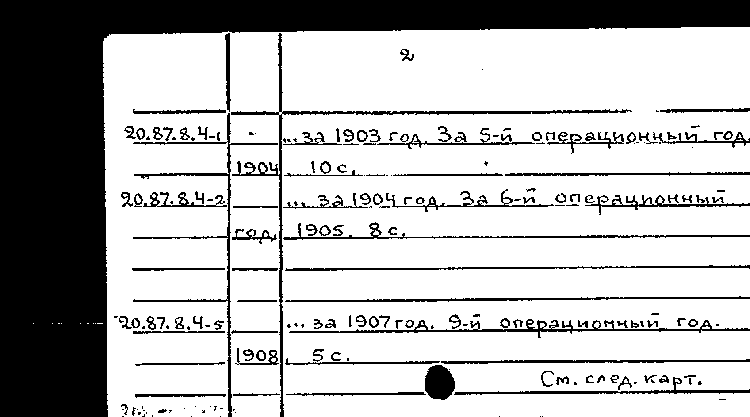 2
20.87.8.4-1 ...за 1903 год. За 5-й операционный год.
1904. 10 с.
20.87.8.4-2 ... за 1904 год. За 6-й операционный
год. 1905. 8 с.
20.87.8.4-5 ... за 1907 год. 9-й операционный год.
1908. 5 с.
См. след. карт.